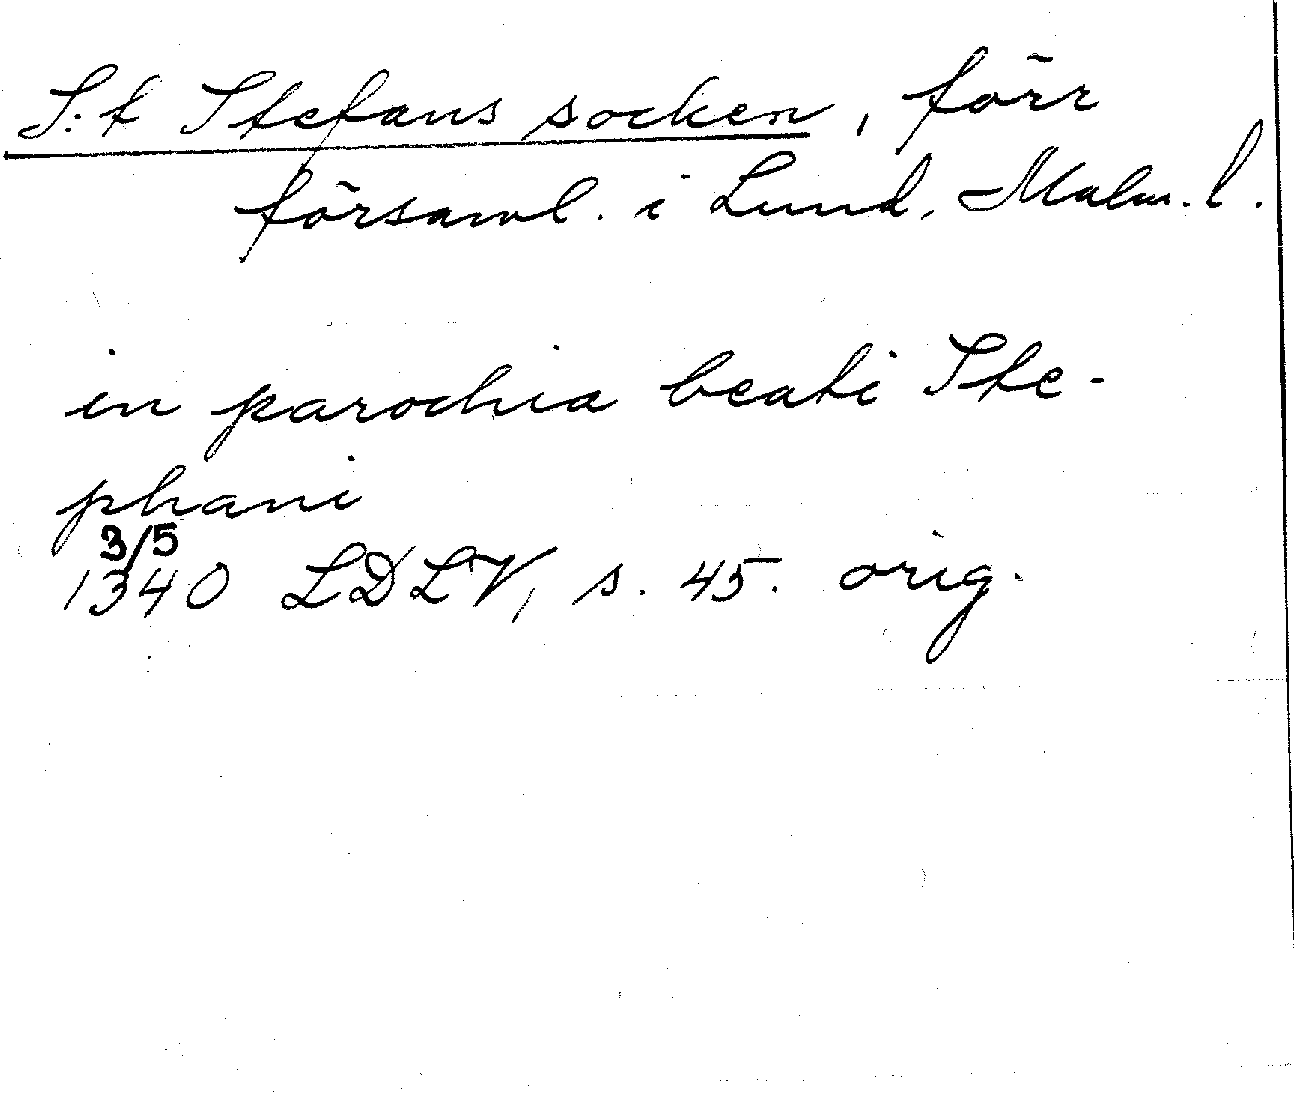 S:t Stefans socken, förr
församl. i Lund, Malm. l.
in parochia beati Ste-
phani
3/5
1340 LDLV, s. 45. orig.